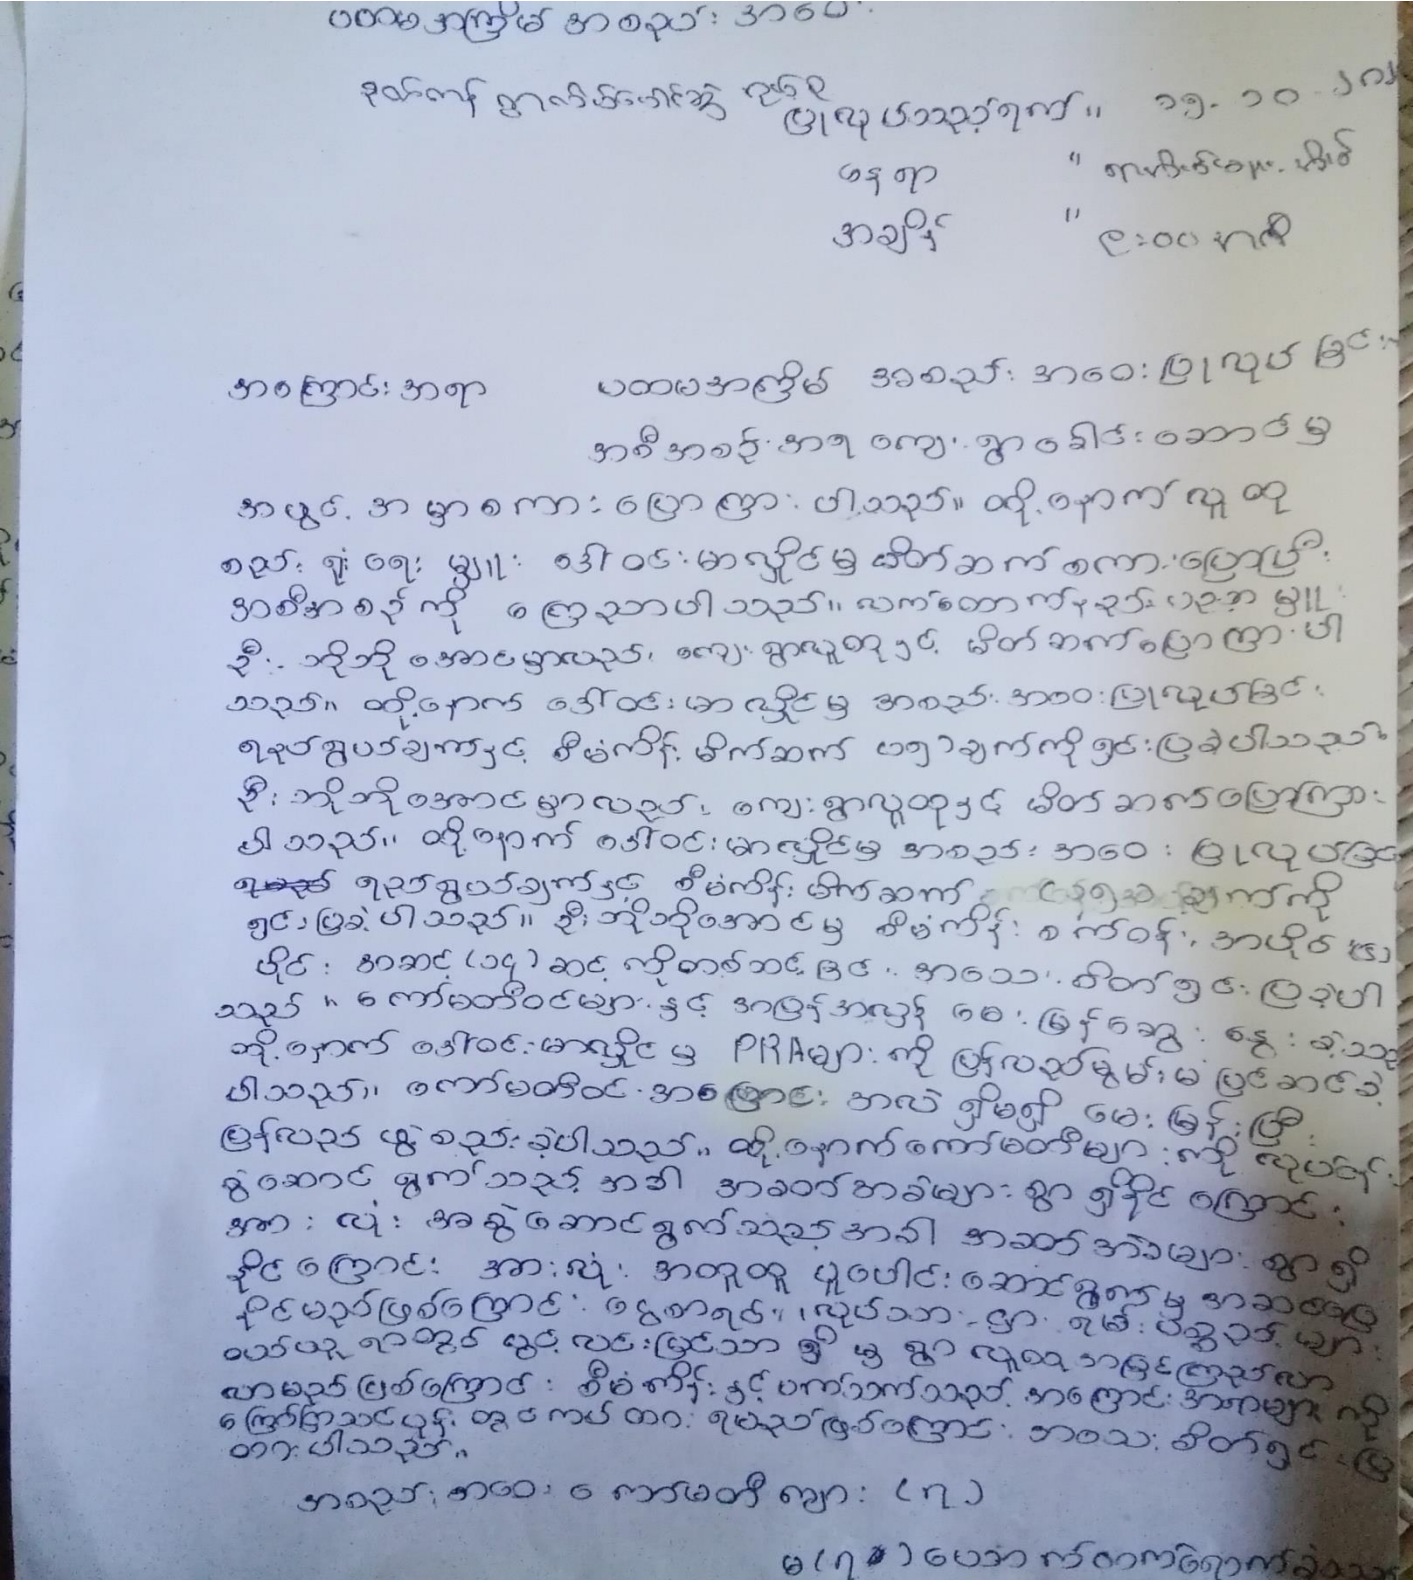 ပထမအကြိမ် အစည်းအဝေး
ပြုလုပ်သည့်ရက်။ ၁၅.၁၀.
နေရာ "
အချိန် " ၉:၀၀ နာရီ
အကြောင်းအရာ ပထမအကြိမ် အစည်းအဝေးပြုလုပ်ခြင်း
အစီအစဉ်အရ ကျေးရွာခေါင်းဆောင်မှ
အဖွင့်အမှာစကားပြောကြားပါသည်။ ထို့နောက် လူထု
စည်းရုံးရေးမှူး ဒေါ်ဝင်းမာလှိုင်မှ မိတ်ဆက်စကားပြောပြီး
အစီအစဉ်ကို ကြေညာပါသည်။ လက်ထောက်နည်းပညာမှူး
ဦးဘိုဘိုအောင်မှလည်း ကျေးရွာလူထုနှင့် မိတ်ဆက်ပြောကြားပါ
သည်။ ထို့နောက် ဒေါ်ဝင်းမာလှိုင်မှ အစည်းအဝေးပြုလုပ်ခြင်း
ရည်ရွယ်ချက်နှင့် စီမံကိန်းမိတ်ဆက် ချက်ကိုရှင်းပြခဲ့ပါသည်။
ဦးဘိုဘိုအောင်မှာလည်း ကျေးရွာလူထုနှင့် မိတ်ဆက်ပြောကြား
ပါသည်။ ထို့နောက် ဒေါ်ဝင်းမာလှိုင်မှ အစည်းအဝေးပြုလုပ်ခြင်း
ရည်ရွယ်ချက်နှင့် စီမံကိန်းမိတ်ဆက် ချက်ကို
ရှင်းပြခဲ့ပါသည်။ ဦးဘိုဘိုအောင်မှ စီမံကိန်းစက်ဝန်း, အပိုင်း (၅)
ပိုင်း အဆင့် (၁၄) ဆင့်ကိုတစ်ဆင့်ခြင်း အသေးစိတ်ရှင်းပြခဲ့ပါ
သည်။ ကော်မတီဝင်များနှင့် အပြန်အလှန် မေးမြန်းဆွေးနွေးခဲ့သည်
ထို့နောက် ဒေါ်ဝင်းမာလှိုင်မှ PRAများကို ပြန်လည်မွမ်းမံပြင်ဆင်ခဲ့
ပါသည်။ ကော်မတီဝင်အကြောင်း အလဲ ရှိမရှိ မေးမြန်းပြီး
ပြန်လည်ဖွဲ့စည်းခဲ့ပါသည်။ ထို့နောက်ကော်မတီများကို လုပ်ငန်း
ခွဲဆောင်ရွက်သည့်အခါ အခက်အခဲများစွာ ရှိနိုင်ကြောင်း
အားလုံး အခွဲဆောင်ရွက်သည့်အခါ အခက်အခဲများစွာရှိ
နိုင်ကြောင်း အားလုံး အတူတူ ပူပေါင်းဆောင်ရွက်မှ အဆင်ပြေ
နိုင်မည်ဖြစ်ကြောင်း ငွေစာရင်း၊ လုပ်သားငှားရမ်းပစ္စည်းများ
ဝယ်ယူရာတွင် ပွင့်လင်းမြင်သာရှိမှ ရွာလူထု အမြင်ကြည်လာ
လာမည်ဖြစ်ကြောင်း စီမံကိန်းနှင့်ပက်သက်သည့် အကြောင်းအရာများကို
ကြော်ငြာသင်ပုန်းတွင်ကပ်ထားရမည်ဖြစ်ကြောင်း အသေးစိတ်ရှင်းပြ
ထားပါသည်။
အစည်းအဝေး ကော်မတီ ကျား (၇)